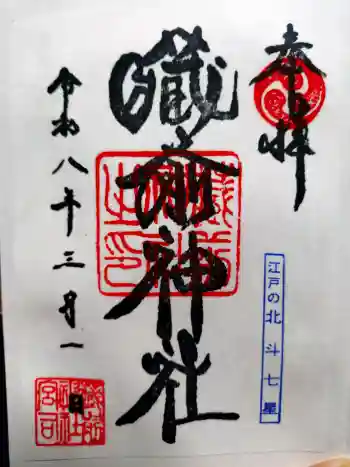 奉拝
藏前神社
令和八年三月一日
江戸の北斗七星